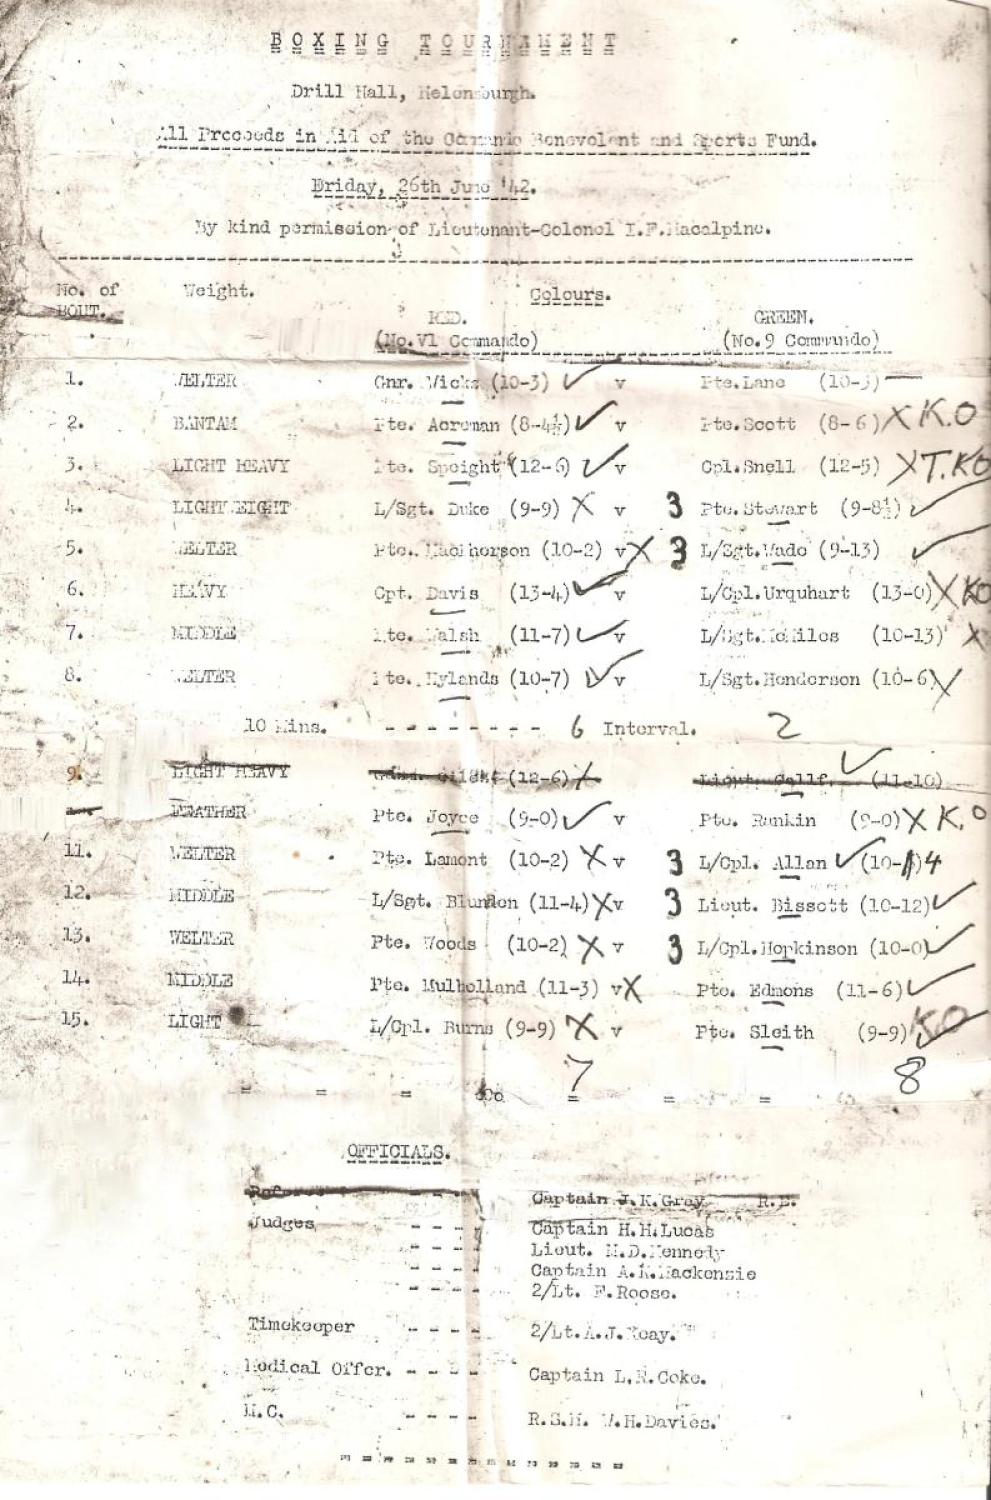 BOXING TOURNAMENT
Drill Hall, Helensburgh.
All Proceeds in Aid of the Commando Benevolent and Sports Fund.
Friday, 26th June '42.
By kind permission of Lieutenant-Colonel I.F.Macalpine.
No. of BOUT. Weight. Colours.
RED. GREEN.
(No.V1 Commando) (No.9 Commando)
1. WELTER Gnr. Wicks (10-3) ✓ v Pte.Lane (10-3) —
2. BANTAM Pte. Acreman (8-4½) ✓ v Pte.Scott (8-6) X K.O
3. LIGHT HEAVY Pte. Speight (12-6) ✓ v Cpl.Snell (12-5) X T.KO
4. LIGHT EIGHT L/Sgt. Duke (9-9) X v 3 Pte.Stewart (9-8½) ✓
5. WELTER Pte. MacPherson (10-2) v X 3 L/Sgt.Wade (9-13) ✓
6. HEAVY Cpt. Davis (13-4) ✓ v L/Cpl.Urquhart (13-0) X KO
7. MIDDLE Pte. Walsh (11-7) ✓ v L/Sgt. (10-13) X
8. WELTER Pte. Hylands (10-7) ✓ v L/Sgt.Henderson (10-6) X
10 Mins. - - - - - - - - 6 Interval. 2
9. LIGHT HEAVY (12-6) X Lieut. ✓ (11-10)
FEATHER Pte. Joyce (9-0) ✓ v Pte. Rankin (9-0) X K.O
11. WELTER Pte. Lamont (10-2) X v 3 L/Cpl. Allan ✓ (10-4
12. MIDDLE L/Sgt. Blunden (11-4) X v 3 Lieut. Bissett (10-12) ✓
13. WELTER Pte. Woods (10-2) X v 3 L/Cpl.Hopkinson (10-0) ✓
14. MIDDLE Pte. Mulholland (11-3) v X Pte. Edmons (11-6) ✓
15. LIGHT L/Cpl. Burns (9-9) X v Pte. Sleith (9-9) KO ✓
7 8
= = = oOo = = =
OFFICIALS.
Referee - - - - Captain J.K.Gray R.E.
Judges - - - - Captain H.H.Lucas
- - - - Lieut. M.D.Kennedy
- - - - Captain A.K.Mackenzie
- - - - 2/Lt. F.Roose.
Timekeeper - - - - 2/Lt.A.J.
Medical Offcr. - - - - Captain L.R.Coke.
M.C. - - - - R.S.M. W.H.Davies.